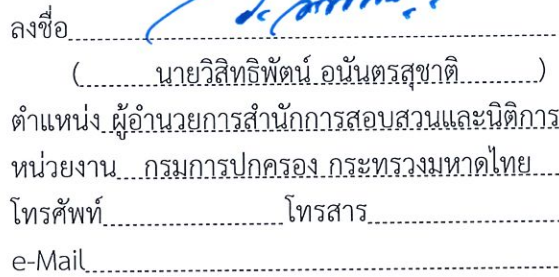 ลงชื่อ
( นายวิสิทธิพัตน์ อนันตรสุชาติ )
ตำแหน่ง ผู้อำนวยการสำนักการสอบสวนและนิติการ
หน่วยงาน กรมการปกครอง กระทรวงมหาดไทย
โทรศัพท์ โทรสาร
e-Mail